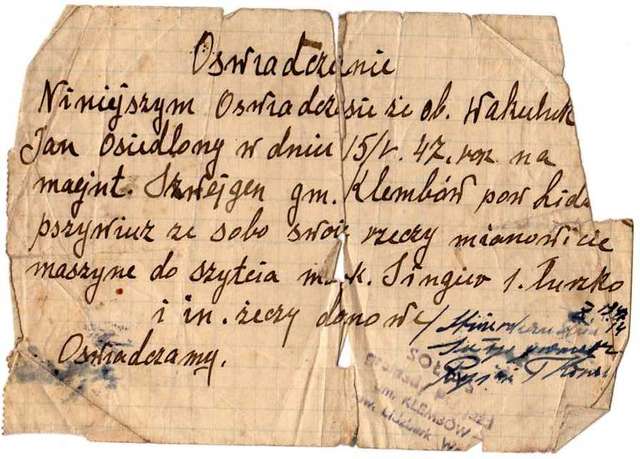 Oswiadczenie
Niniejszym Oswiadcza sie że ob. Wakuluk
Jan osiedlony w dniu 15/V. 47. rok na
majnt. Szwejgen gm. Klembów pow Lidz
pszywiuz ze sobo swoje rzeczy mianowicie
maszyne do szytcia m.k. Singier 1. łuszko
i in. żeczy domowe
Oswiadczamy.
SOŁTYS
gromady
gm. KLEMBÓW
pow. Lidzbark W